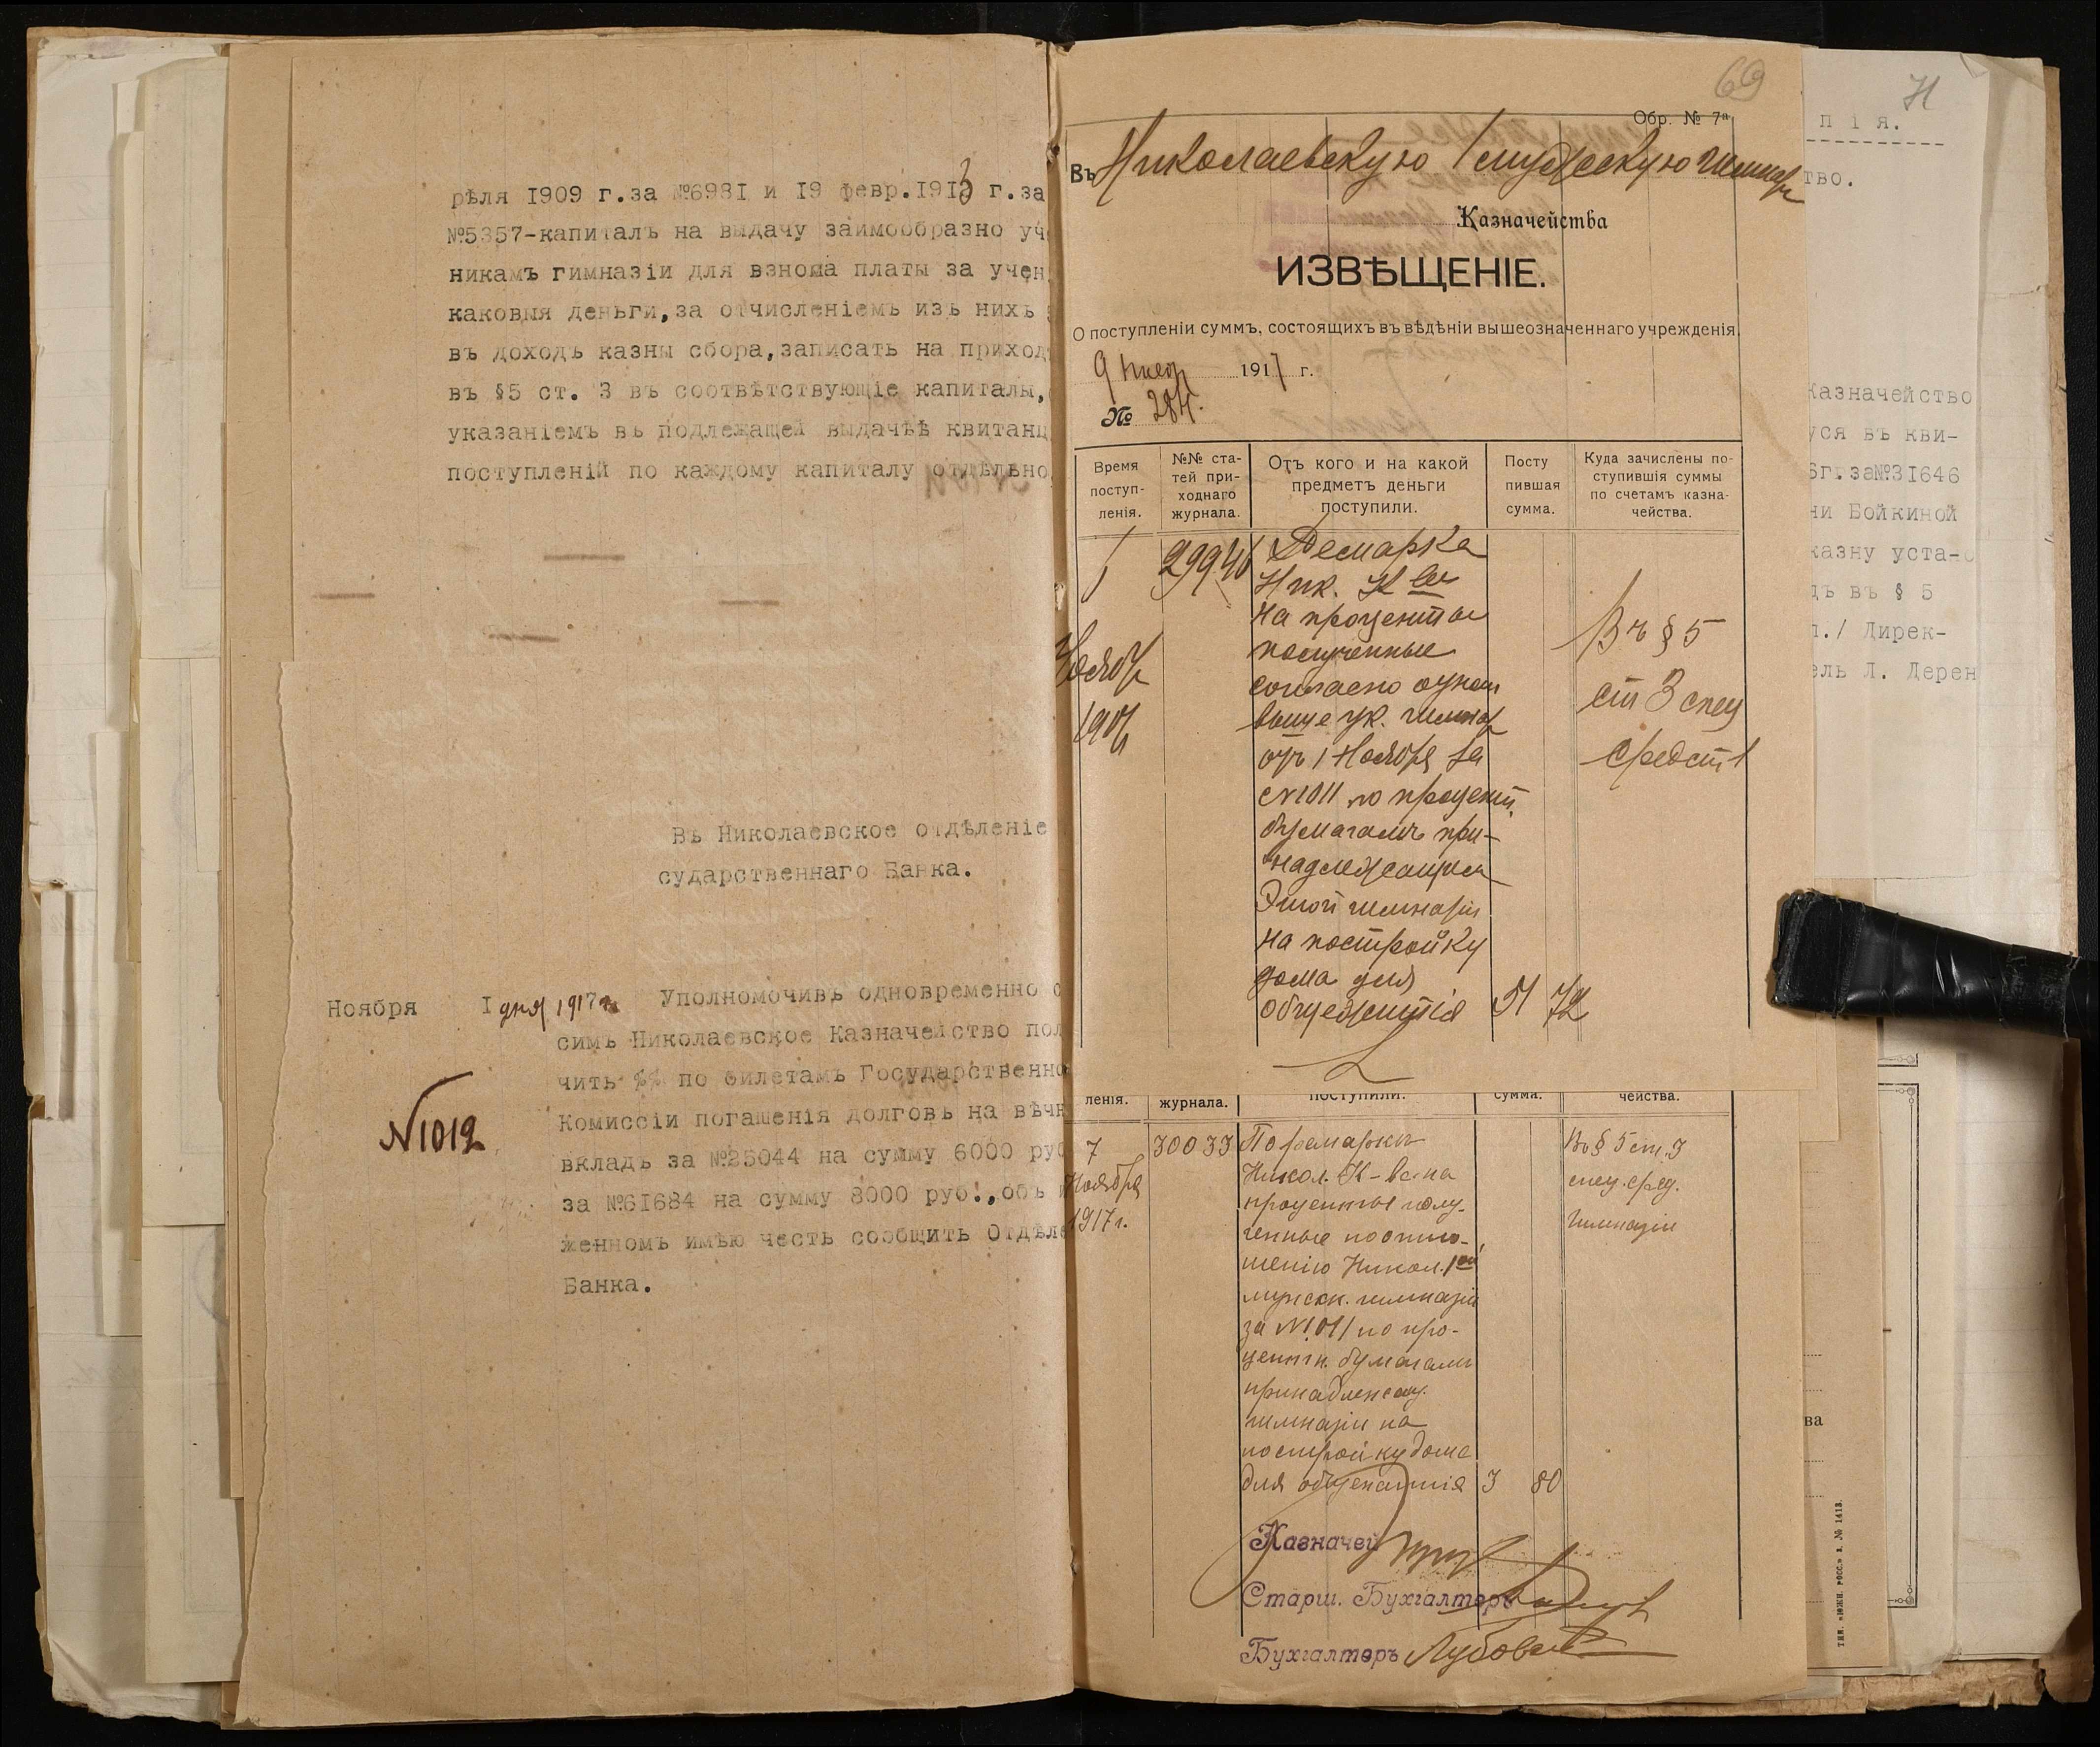 рѣля 1909 г.за №6981 и 19 февр.1913 г.за
№5357-капиталъ на выдачу заимообразно уч
никамъ гимназіи для взноша платы за учен
каковыя деньги, за отчисленіемъ изъ нихъ
въ доходъ казны сбора, записать на приход
въ §5 ст. 3 въ соотвѣтствующіе капиталы,
указаніемъ въ подлежащей выдачѣѣ квитанц
поступленій по каждому капиталу отдѣльно
Въ Николаевское отдѣленіе
сударственнаго Банка.
Ноября I дня 1917 г. Уполномочивъ одновременно с
симъ Николаевское Казначейство пол
чить %% по билетамъ Государственно
№1012
Комиссіи погашенія долговъ на вѣчн
вкладъ за №25044 на сумму 6000 руб
за №61684 на сумму 8000 руб., объ
женномъ имѣю честь сообщить Отдѣле
Банка.
69
Обр. № 7а
Въ Николаевскую 1 мужескую гимназ
Казначейства
ИЗВѢЩЕНІЕ.
О поступленіи суммъ, состоящихъ въ вѣдѣніи вышеозначеннаго учрежденія
9 1917 г.
№ 284.
Время поступ-ленія.
№№ ста-тей при-ходнаго журнала.
Отъ кого и на какой предметъ деньги поступили.
Посту пившая сумма.
Куда зачислены по-ступившія суммы по счетамъ казна-чейства.
29946
Ник. К ва
на проценты
полученные
согласно
выше ук. гимназ
отъ 1 Ноября за
№1011 по процент.
бумагамъ при-
надлежащим
Этой гимназіи
на постройку
дома для
общежитія 51 72
Ноябр
Въ § 5
ст 3 спец
средств
ленія. журнала. поступили. сумма. чейства.
7 30033
Ноября
1917 г.
По ремаркѣ
Никол. К-ва на
проценты полу-
ченные по отно-
шенію Никол. 1ой
мужск. гимназіи
за №1011 по про-
центн. бумагамъ
принадлежащ.
гимназіи на
постройку дома
для общежитія 3 80
Въ § 5 ст. 3
спец. сред.
Гимназіи
Казначей
Старш. Бухгалтеръ
Бухгалтеръ
71
пія.
тво.
Казначейство
уся въ кви-
6г. за№31646
ни Бойкиной
казну уста-
дъ въ § 5
п./ Дирек-
ель Л. Дерен
ва
ТИП. «ЮЖН. РОСС.» з. № 1413.